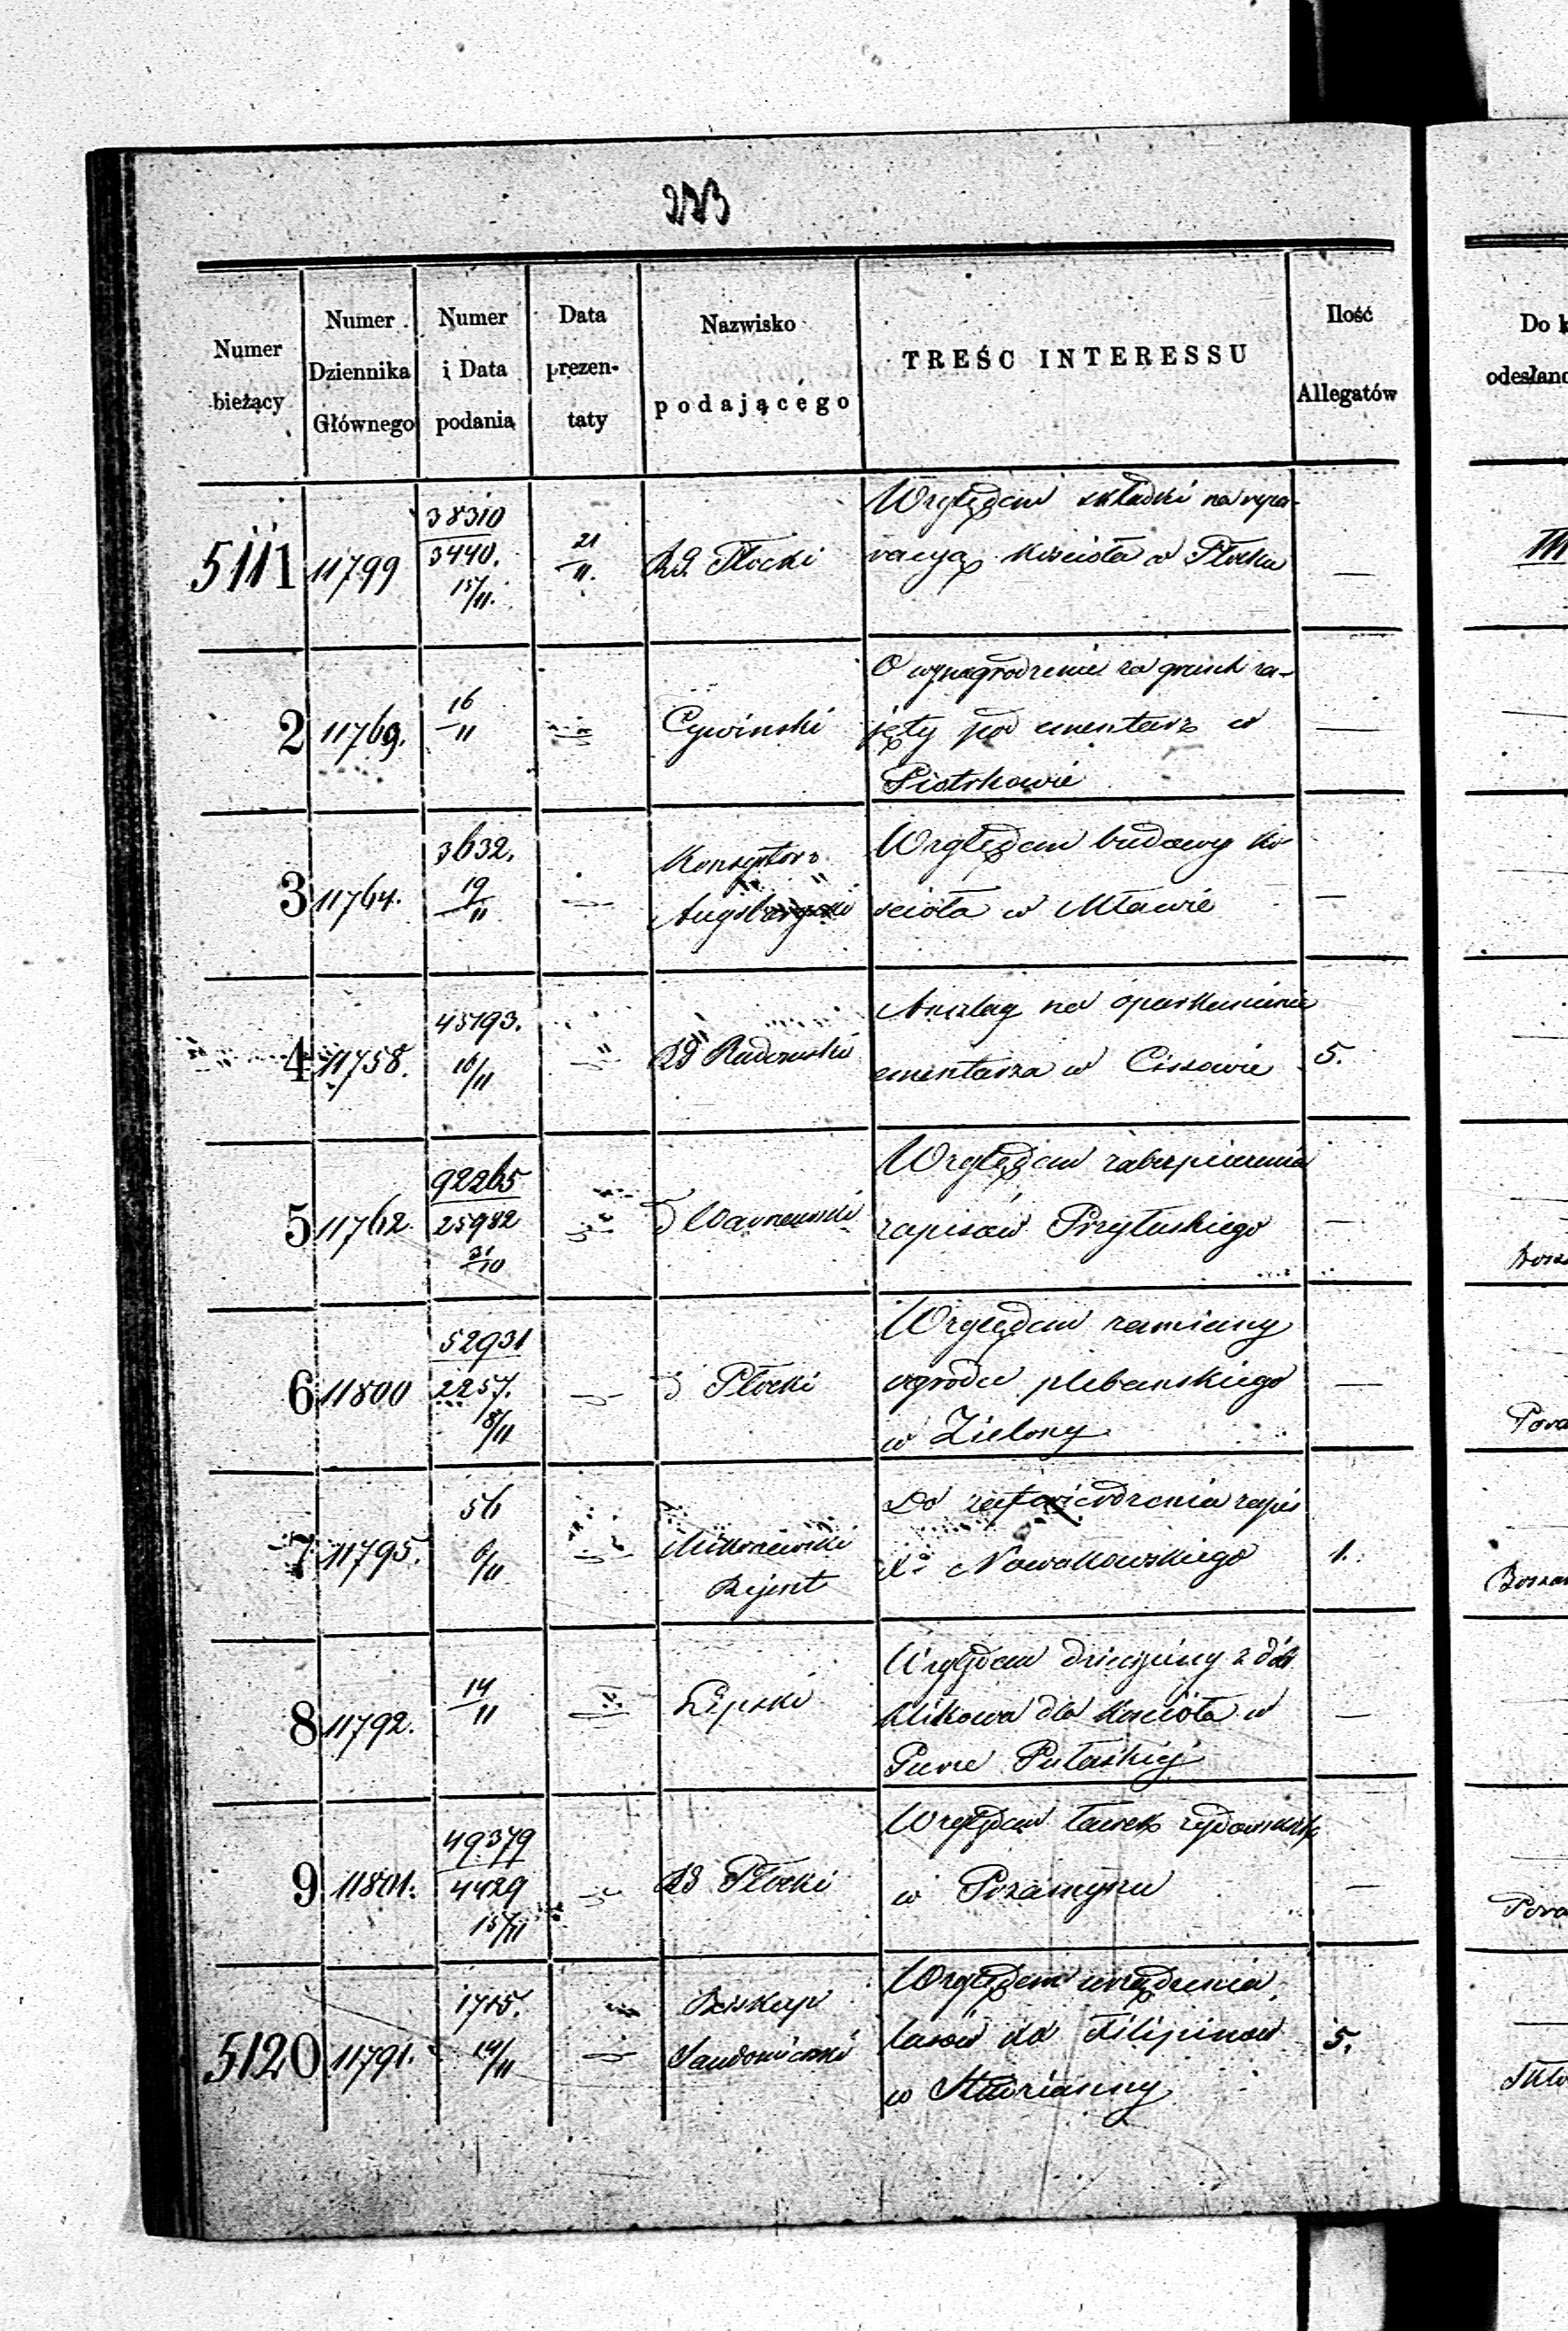 273
Numer bieżący
Numer Dziennika Głównego
Numer i Data podania
Data prezen- taty
Nazwisko podającego
TREŚĆ INTERESSU
Ilość Allegatów
Do k
odesłano
5111 11799 38310 3440. 15/11. 21/11. R.G. Płocki
Względem składki na repa-
racyą kościoła w Płocku —
III
2 11769. 16/11 Cywinski
O wynagrodzenie za grunt za-
jęty pod cmentarz w —
Piotrkowie
3 11764. 3632. 19/11 — Konsystorz
Augsburgski
Względem budowy ko-
scioła w Mławie —
4 11758. 45193. 10/11 — RG Radomski
Anszlag na oparkanienie
cmentarza w Cissowie 5.
5 11762. 92265 25982 31/10 — Warszawski
Względem zabezpieczenia
zapisów Przyłuskiego —
6 11800 52931 2257. 18/11 — Płocki
Względem zamiany
ogrodu plebanskiego —
w Zielony
Pora
7 11795. 56 6/11 —
Rejent
Do zatwierdzenia zapis
Xa Nowakowskiego 1.
8 11792. 14/11 — Lipski
Względem dziesięciny z dóbr
Klikowa dla kościoła w —
9 11801. 49379 4429 15/11 — RG Płocki
Względem ławek żydowskich
w —
Pora
5120 11791. 1715. 14/11 — Biskup
Sandomierski
Względem urządzenia
lasów XX Filipinow 5.
w Studzianny